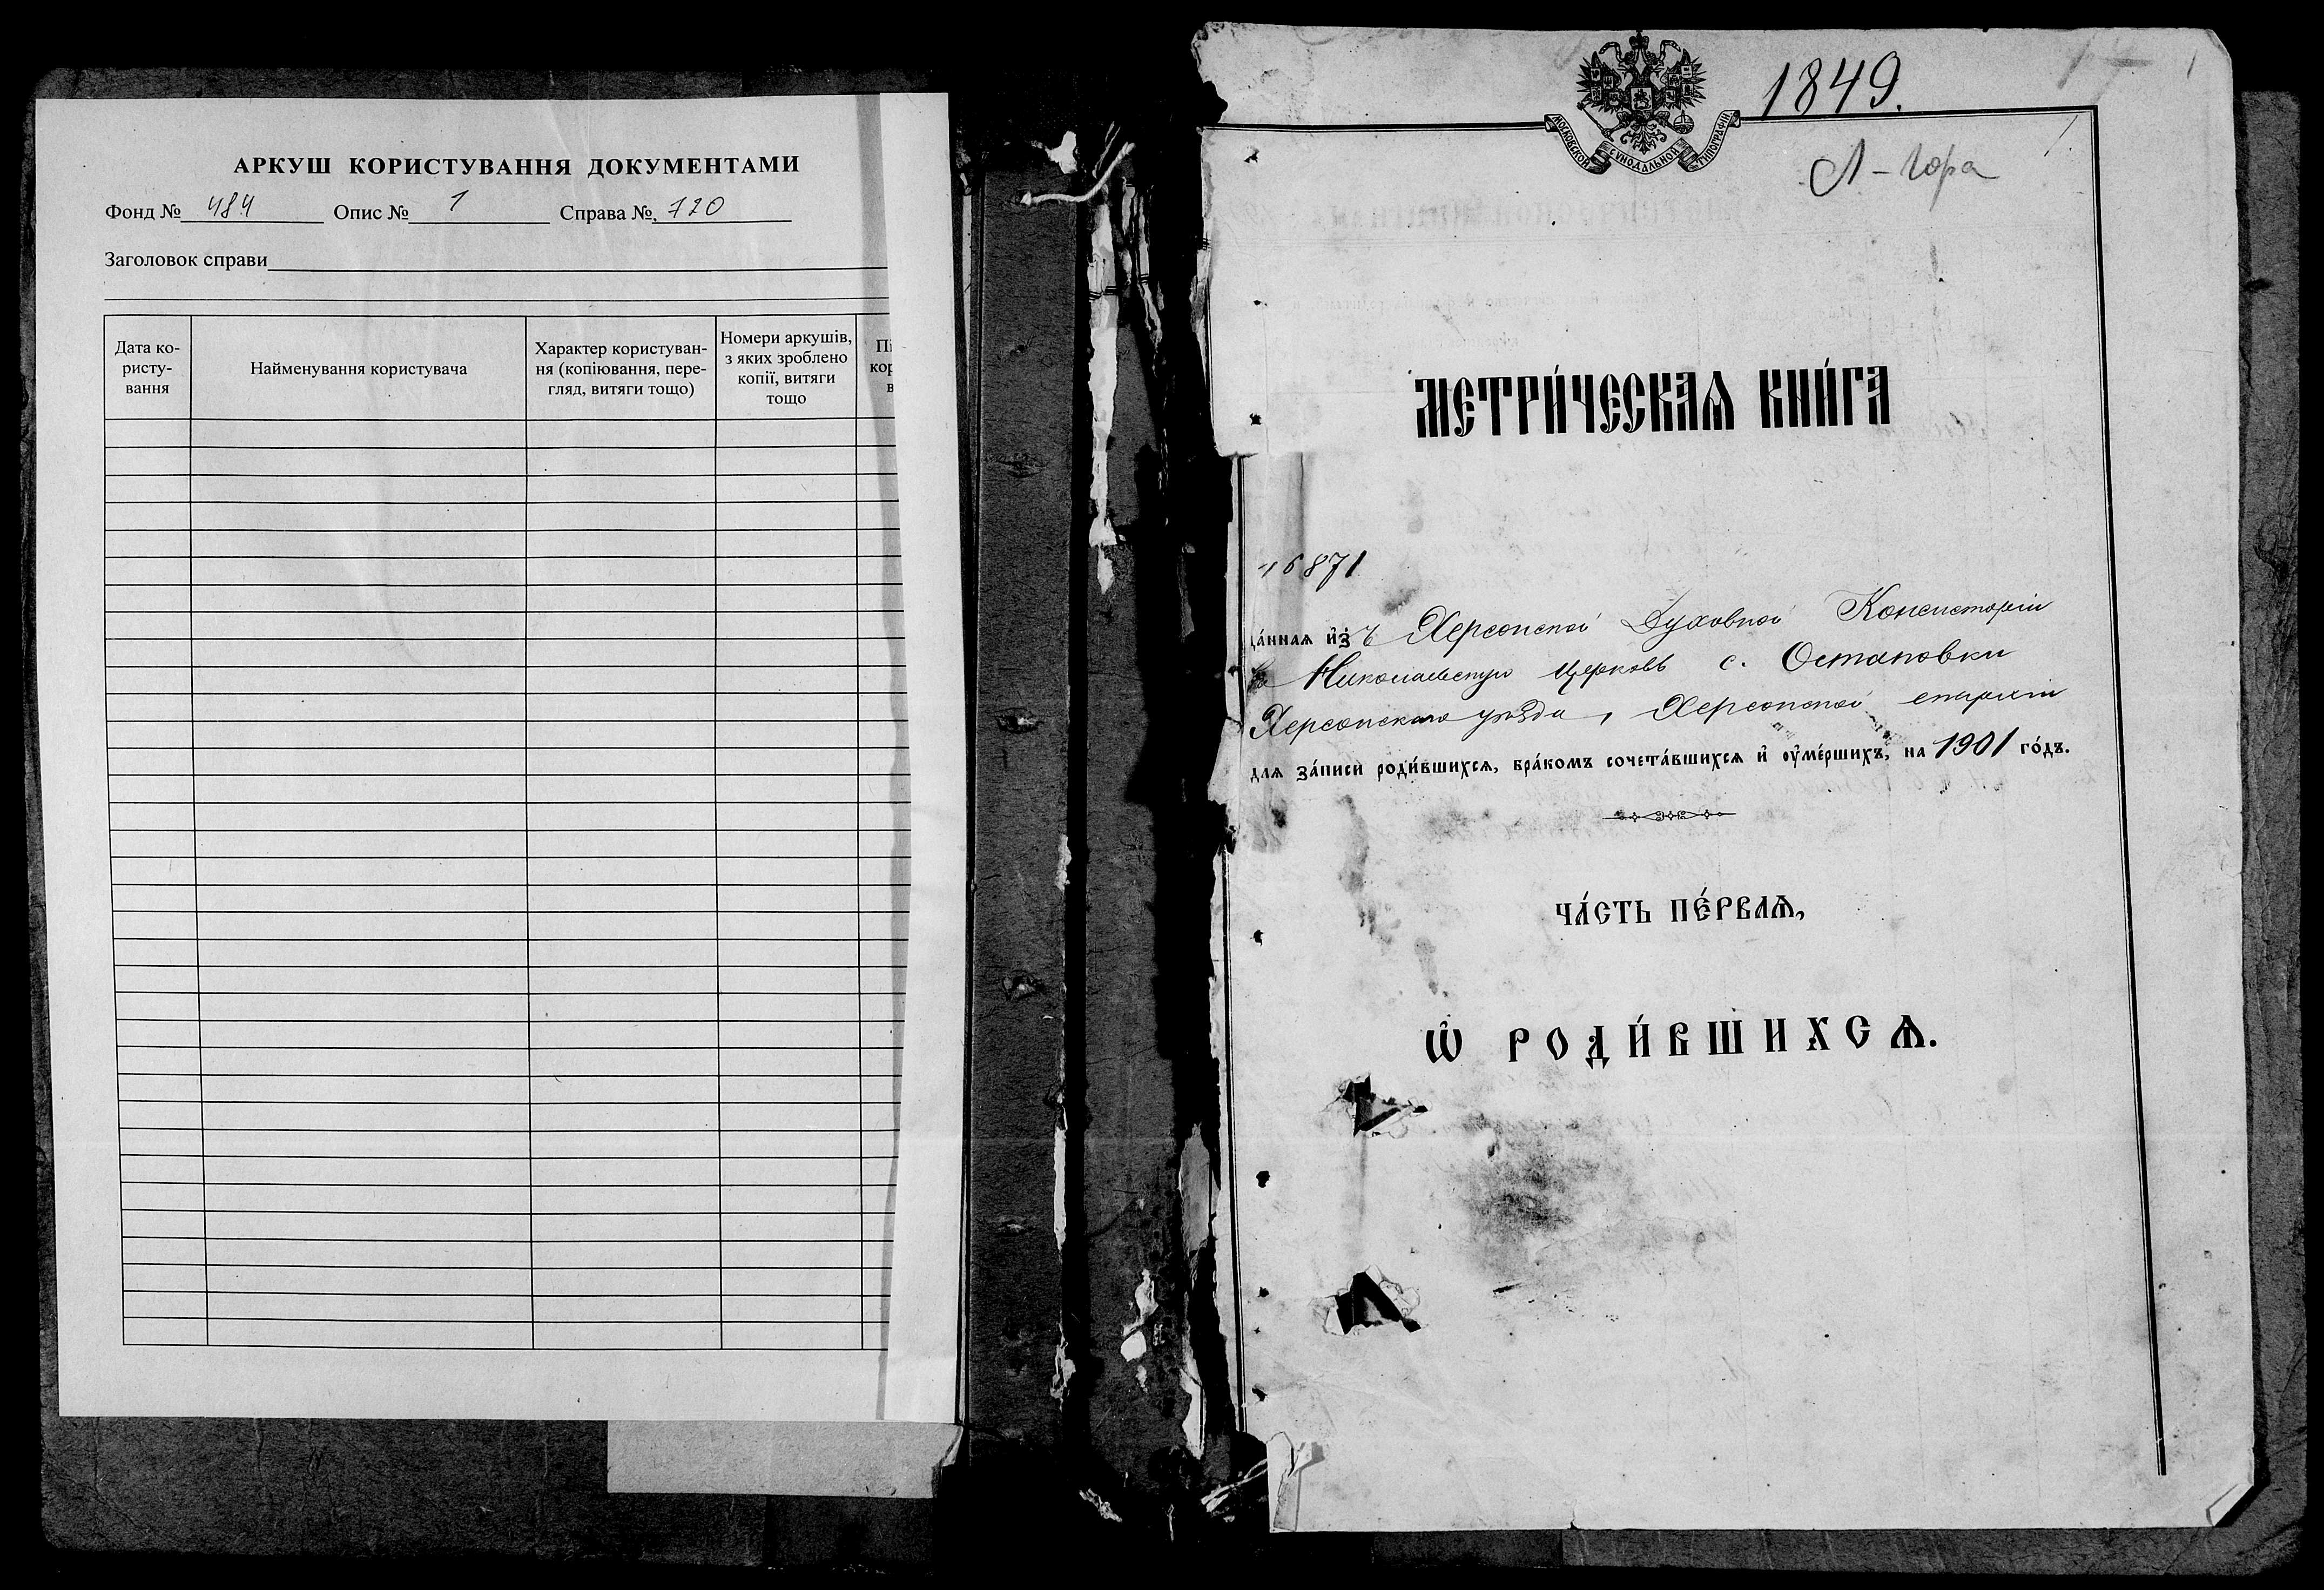 АРКУШ КОРИСТУВАННЯ ДОКУМЕНТАМИ
Фонд № 484 Опис № 1 Справа № 720
Заголовок справи
Дата ко-
ристу-
вання
Найменування користувача
Характер користуван-
ня (копіювання, пере-
гляд, витяги тощо)
Номери аркушів,
з яких зроблено
копії, витяги
тощо
Пі
кор
в
1849.
МОСКОВСКОЙ СѴНОДАЛЬНОЙ ТИПОГРАФІИ
Л-Гора
МЕТРИ́ЧЕСКАѦ КНИ́ГА
16871
да́нная и҆зъ Херсонской Духовной Консисторіи
въ Николаевскую церковь с. Остаповки
Херсонскаго уѣзда, Херсонской епархіи
для за́писи роди́вшихсѧ, бра́комъ сочета́вшихсѧ и҆ ѹ҆ме́ршихъ, на 1901 го́дъ.
ЧА́СТЬ ПЕ́РВАѦ,
Ѡ҆ РОДИ́ВШИХСѦ.